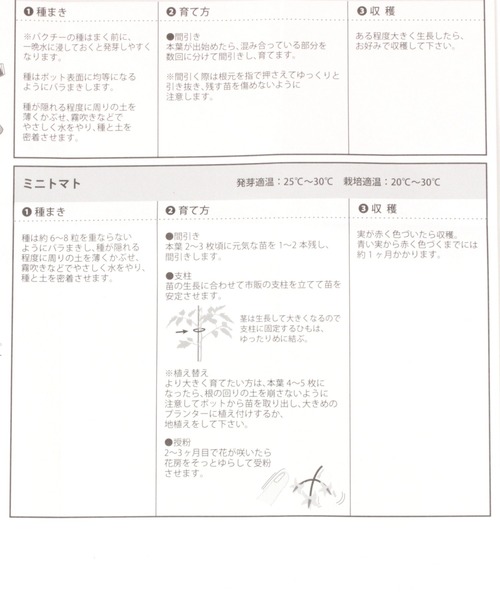 ❶種まき
※パクチーの種はまく前に、
一晩水に浸しておくと発芽しやすく
なります。
種はポット表面に均等になる
ようにバラまきします。
種が隠れる程度に周りの土を
薄くかぶせ、霧吹きなどで
やさしく水をやり、種と土を
密着させます。
❷育て方
●間引き
本葉が出始めたら、混み合っている部分を
数回に分けて間引きし、育てます。
※間引く際は根元を指で押さえてゆっくりと
引き抜き、残す苗を傷めないように
注意します。
❸収 穫
ある程度大きく生長したら、
お好みで収穫して下さい。
ミニトマト
発芽適温：25℃～30℃ 栽培適温：20℃～30℃
❶種まき
種は約6～8粒を重ならない
ようにバラまきし、種が隠れる
程度に周りの土を薄くかぶせ、
霧吹きなどでやさしく水をやり、
種と土を密着させます。
❷育て方
●間引き
本葉2～3枚頃に元気な苗を1～2本残し、
間引きします。
●支柱
苗の生長に合わせて市販の支柱を立てて苗を
安定させます。
茎は生長して大きくなるので
支柱に固定するひもは、
ゆったりめに結ぶ。
※植え替え
より大きく育てたい方は、本葉4～5枚に
なったら、根の回りの土を崩さないように
注意してポットから苗を取り出し、大きめの
プランターに植え付けするか、
地植えをして下さい。
●授粉
2～3ヶ月目で花が咲いたら
花房をそっとゆらして受粉
させます。
❸収 穫
実が赤く色づいたら収穫。
青い実から赤く色づくまでには
約1ヶ月かかります。